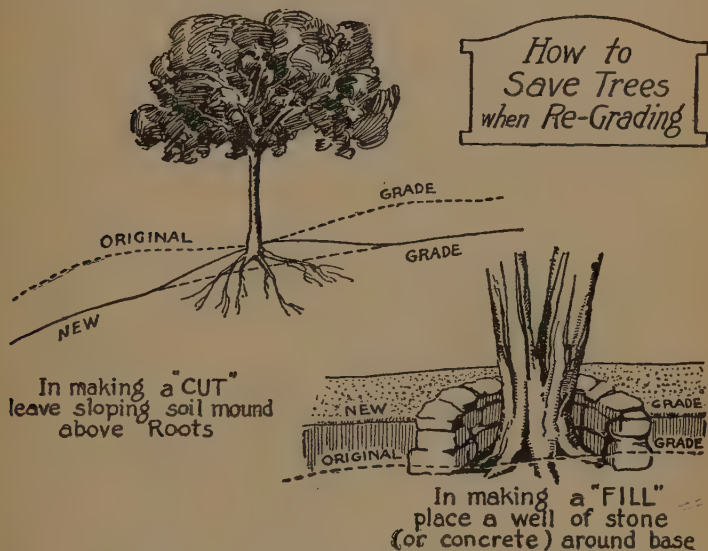 How to
Save Trees
when Re-Grading
GRADE
ORIGINAL
GRADE
NEW
In making a "CUT"
leave sloping soil mound
above Roots
NEW
GRADE
ORIGINAL
GRADE
In making a "FILL"
place a well of stone
(or concrete) around base